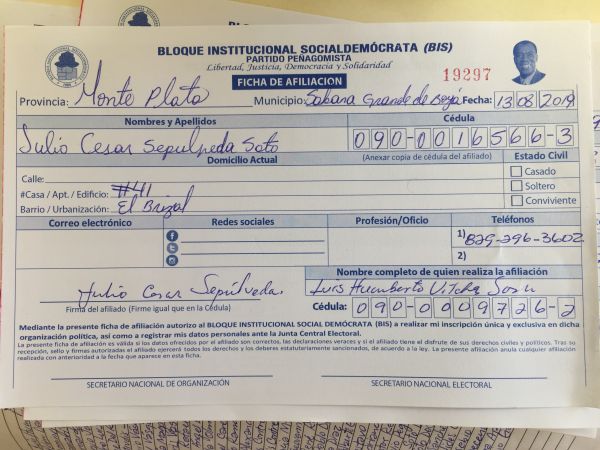 BLOQUE INSTITUCIONAL SOCIALDEMÓCRATA (BIS)
PARTIDO PEÑAGOMISTA
Libertad, Justicia, Democracia y Solidaridad
FICHA DE AFILIACION
19297
Provincia: Monte Plata Municipio: Sabana Grande de Boyá Fecha: 13 08 2019
Nombres y Apellidos Cédula
Julio Cesar Sepulpeda Soto 090-0016566-3
Domicilio Actual (Anexar copia de cédula del afiliado) Estado Civil
Calle: Casado
#Casa / Apt. / Edificio: #41 Soltero
Barrio / Urbanización: El Brizal Conviviente
Correo electrónico Redes sociales Profesión/Oficio Teléfonos
1) 829-296-3602
2)
Nombre completo de quien realiza la afiliación
Julio Cesar Sepúlveda Luis Humberto Sosa
Firma del afiliado (Firme igual que en la Cédula) Cédula: 090-0009726-2
Mediante la presente ficha de afiliación autorizo al BLOQUE INSTITUCIONAL SOCIAL DEMÓCRATA (BIS) a realizar mi inscripción única y exclusiva en dicha
organización política, así como a registrar mis datos personales ante la Junta Central Electoral.
La presente ficha de afiliación es válida si los datos ofrecidos por el afiliado son correctos, las declaraciones veraces y si el afiliado tiene el disfrute de sus derechos civiles y políticos. Tras su
recepción, sello y firmas autorizadas el afiliado ejercerá todos los derechos y los deberes estatutariamente sancionados, de acuerdo a la ley. La presente afiliación anula cualquier afiliación
realizada con anterioridad a la fecha que aparece en esta ficha.
SECRETARIO NACIONAL DE ORGANIZACIÓN SECRETARIO NACIONAL ELECTORAL